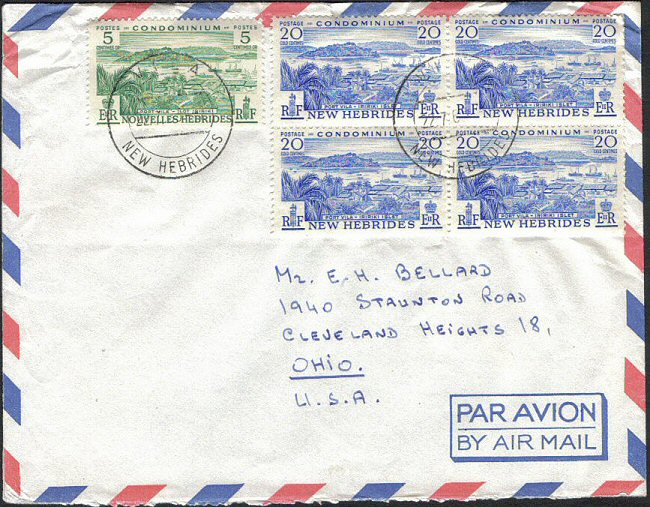 POSTES CONDOMINIUM POSTES
5 5
CENTIMES OR CENTIMES OR
PORT VILA - IRIRIKI ISLET
EIIR NOUVELLES HEBRIDES RF
NEW HEBRIDES
POSTAGE CONDOMINIUM POSTAGE
20 20
GOLD CENTIMES GOLD CENTIMES
PORT VILA - IRIRIKI ISLET
RF NEW HEBRIDES EIIR
POSTAGE CONDOMINIUM POSTAGE
20 20
GOLD CENTIMES GOLD CENTIMES
PORT VILA - IRIRIKI ISLET
RF NEW HEBRIDES EIIR
POSTAGE CONDOMINIUM POSTAGE
20 20
GOLD CENTIMES GOLD CENTIMES
PORT VILA - IRIRIKI ISLET
RF NEW HEBRIDES EIIR
POSTAGE CONDOMINIUM POSTAGE
20 20
GOLD CENTIMES GOLD CENTIMES
PORT VILA - IRIRIKI ISLET
RF NEW HEBRIDES EIIR
NEW HEBRIDES
MR. E. H. BELLARD
1940 STAUNTON ROAD
CLEVELAND HEIGHTS 18,
OHIO.
U.S.A.
PAR AVION
BY AIR MAIL